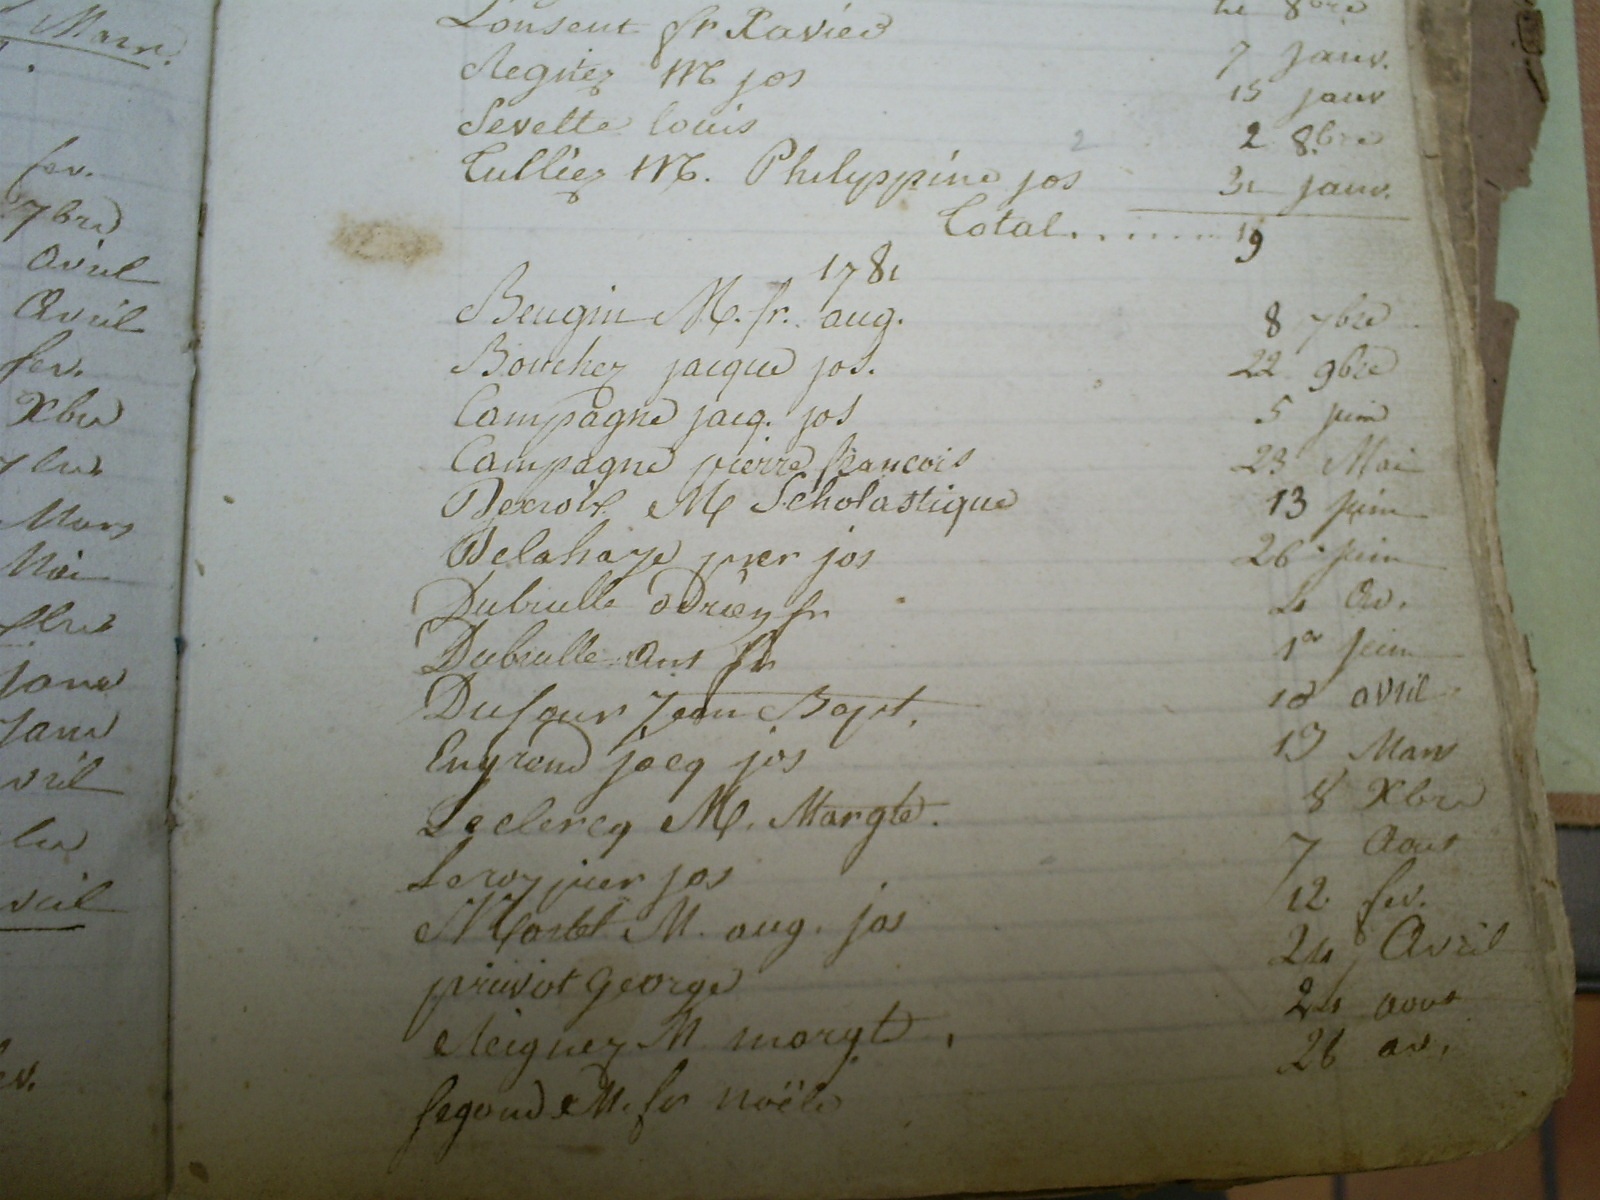 Mars.
fev.
7bre
Avril
Avril
fev.
Xbre
Mars
Mai
janv
janv
vril
vril
ev.
fr Xavier 8bre
Regniez M jos 7 Janv.
Sevette louis 15 janv
2 2 8bre
Tulliez M. Philyppine jos 31 janv.
Total....... 19
1781
Beugin M. fr. aug. 8 7bre
Bouchez jacque jos. 22 9bre
Campagne jacq. jos 5 juin
Campagne pierre francois 23 Mai
Decroix M Scholastique 13 juin
Delahaye pier jos 26 juin
Dubrulle adrien fr 4 Av.
Dubrulle ant fr 1er juin
Dufour Jean Bapt. 10 avril
Engrand jacq jos 13 Mars
Leclercq M. Margte. 8 Xbre
Leroy pier jos 7 Aout
Martel M. aug. jos 12 fev.
privot George 24 Avril
Reignez M margt. 24 aout
segond M. fr noële 26 av.